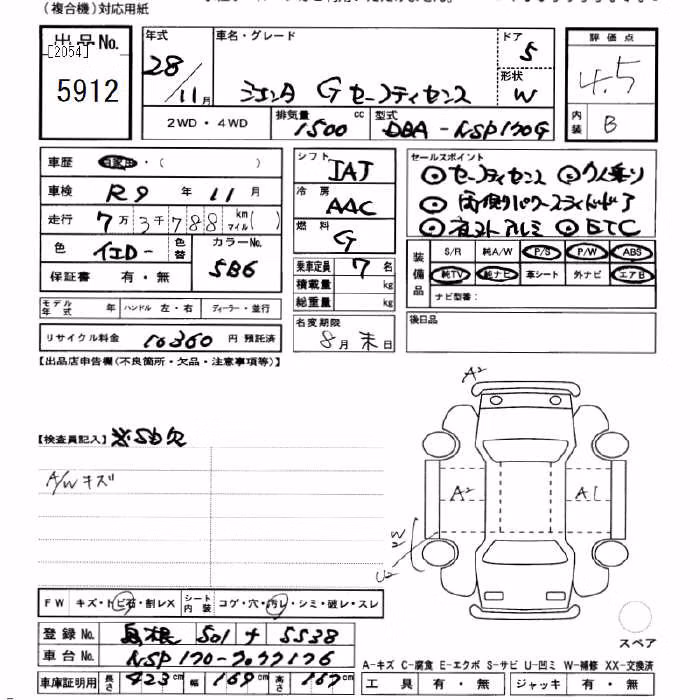 (複合機)対応用紙
出品No. [2054] 5912
年式 28/11月
車名・グレード シエンタ G セーフティセンス
ドア 5
形状 W
評価点 4.5
内装 B
2WD・4WD
排気量 1500 cc
型式 DBA-NSP170G
車歴 自家用・( )
車検 R9年 11月
走行 7万3千788 km マイル( )
色 イエロー 色替 カラーNo. 5B6
保証書 有・無
モデル年式 年 ハンドル 左・右 ディーラー・並行
リサイクル料金 10360 円 預託済
シフト IAT
冷房 AAC
燃料 G
乗車定員 7 名
積載量 kg
総重量 kg
名変期限 8月末日
セールスポイント
◎セーフティセンス ◎7人乗り
◎両側パワースライドドア
◎社外アルミ ◎ETC
装備品 S/R 純A/W P/S P/W ABS
純TV 純ナビ 革シート 外ナビ エアB
ナビ型番:
後日品
【出品店申告欄(不良箇所・欠品・注意事項等)】
【検査員記入】 ※
A/Wキズ
A2
A2
A1
W2
U2
FW キズ・トビ石・割レX シート内装 コゲ・穴・汚レ・シミ・破レ・スレ
登録No. 島根 501 ナ 5538
車台No. NSP170-7077176
車庫証明用 長さ 423cm 幅 169cm 高さ 167cm
スペア
A-キズ C-腐食 E-エクボ S-サビ U-凹ミ W-補修 XX-交換済
工具 有・無 ジャッキ 有・無